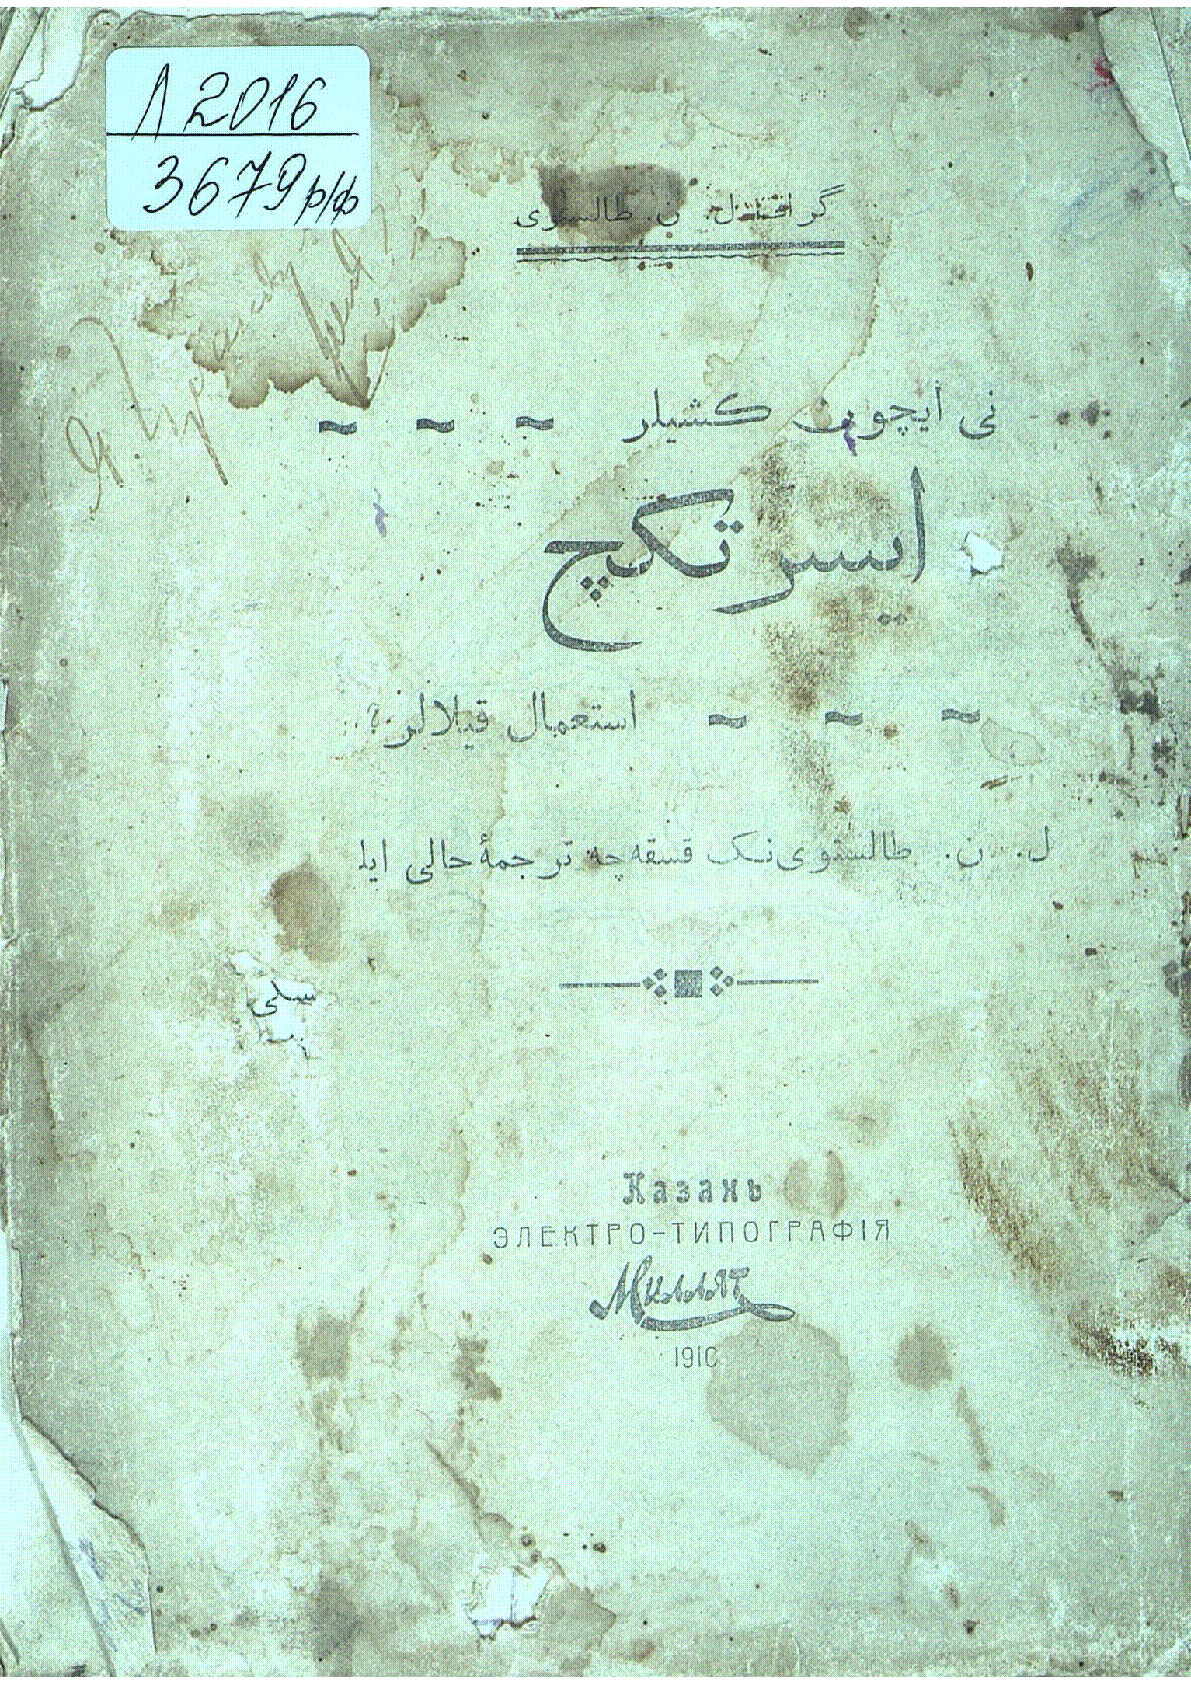 Л 2016
3679 р/ф
گراف ل. ن. طالستوی
نی ایچون کشیلر
ایسرتکچ
استعمال قیلالر؟
ل. ن. طالستوی نک قسقه چه ترجمهٔ حالی ایله
Казань
ЭЛЕКТРО-ТИПОГРАФІЯ
Миллят
1910